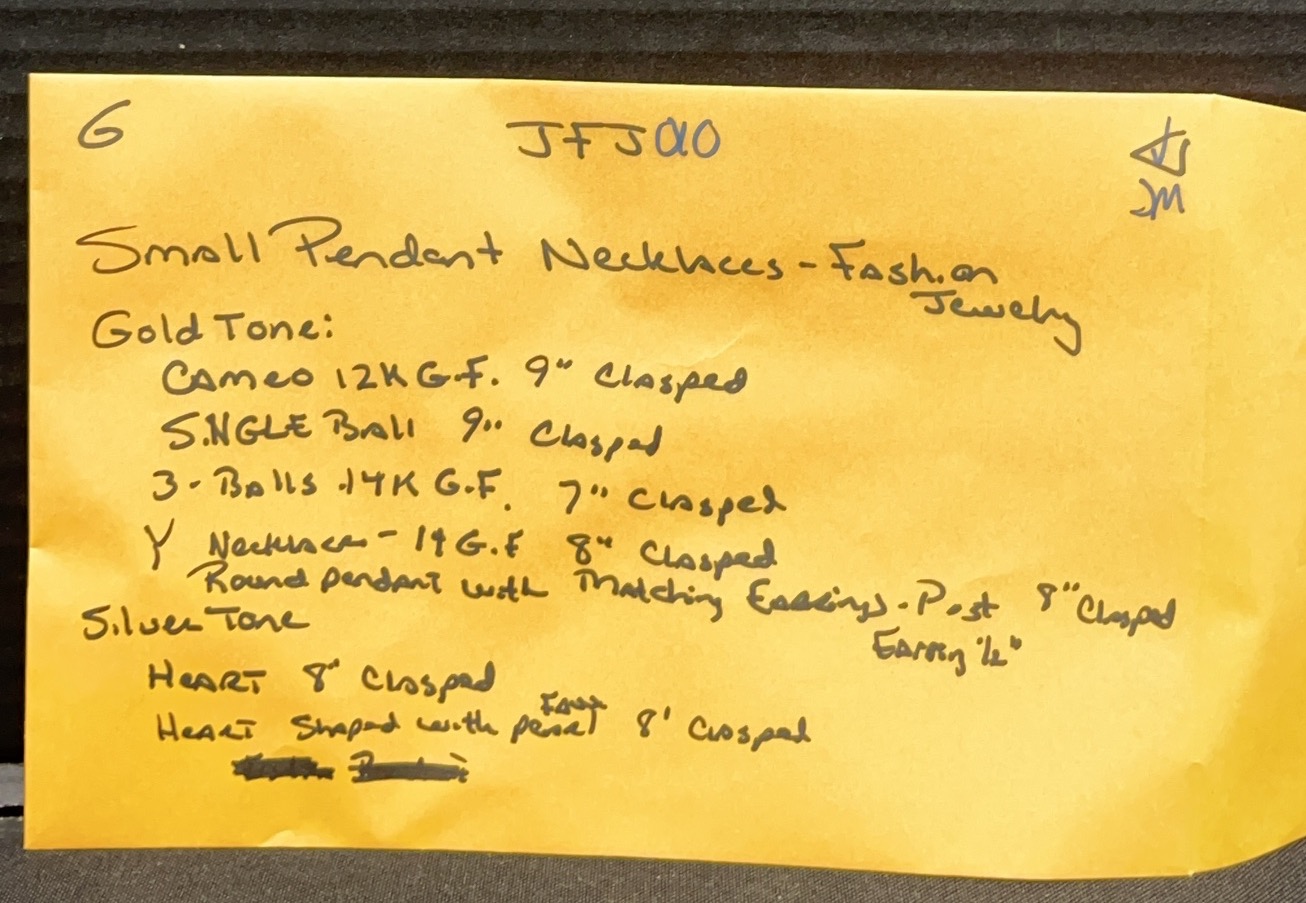 G JFJ90
JM
Small Pendant Necklaces - Fashion
Jewelry
Gold Tone:
Cameo 12K G.F. 9" Clasped
SINGLE Ball 9" Clasped
3 - Balls .14K G.F. 7" Clasped
Y Necklace - 14 G.F 8" Clasped
Round pendant with Matching Earrings - Post 8" Clasped
Earring 1/2"
Silver Tone
HEART 8" Clasped
Faux
HEART Shaped with pearl 8' Clasped